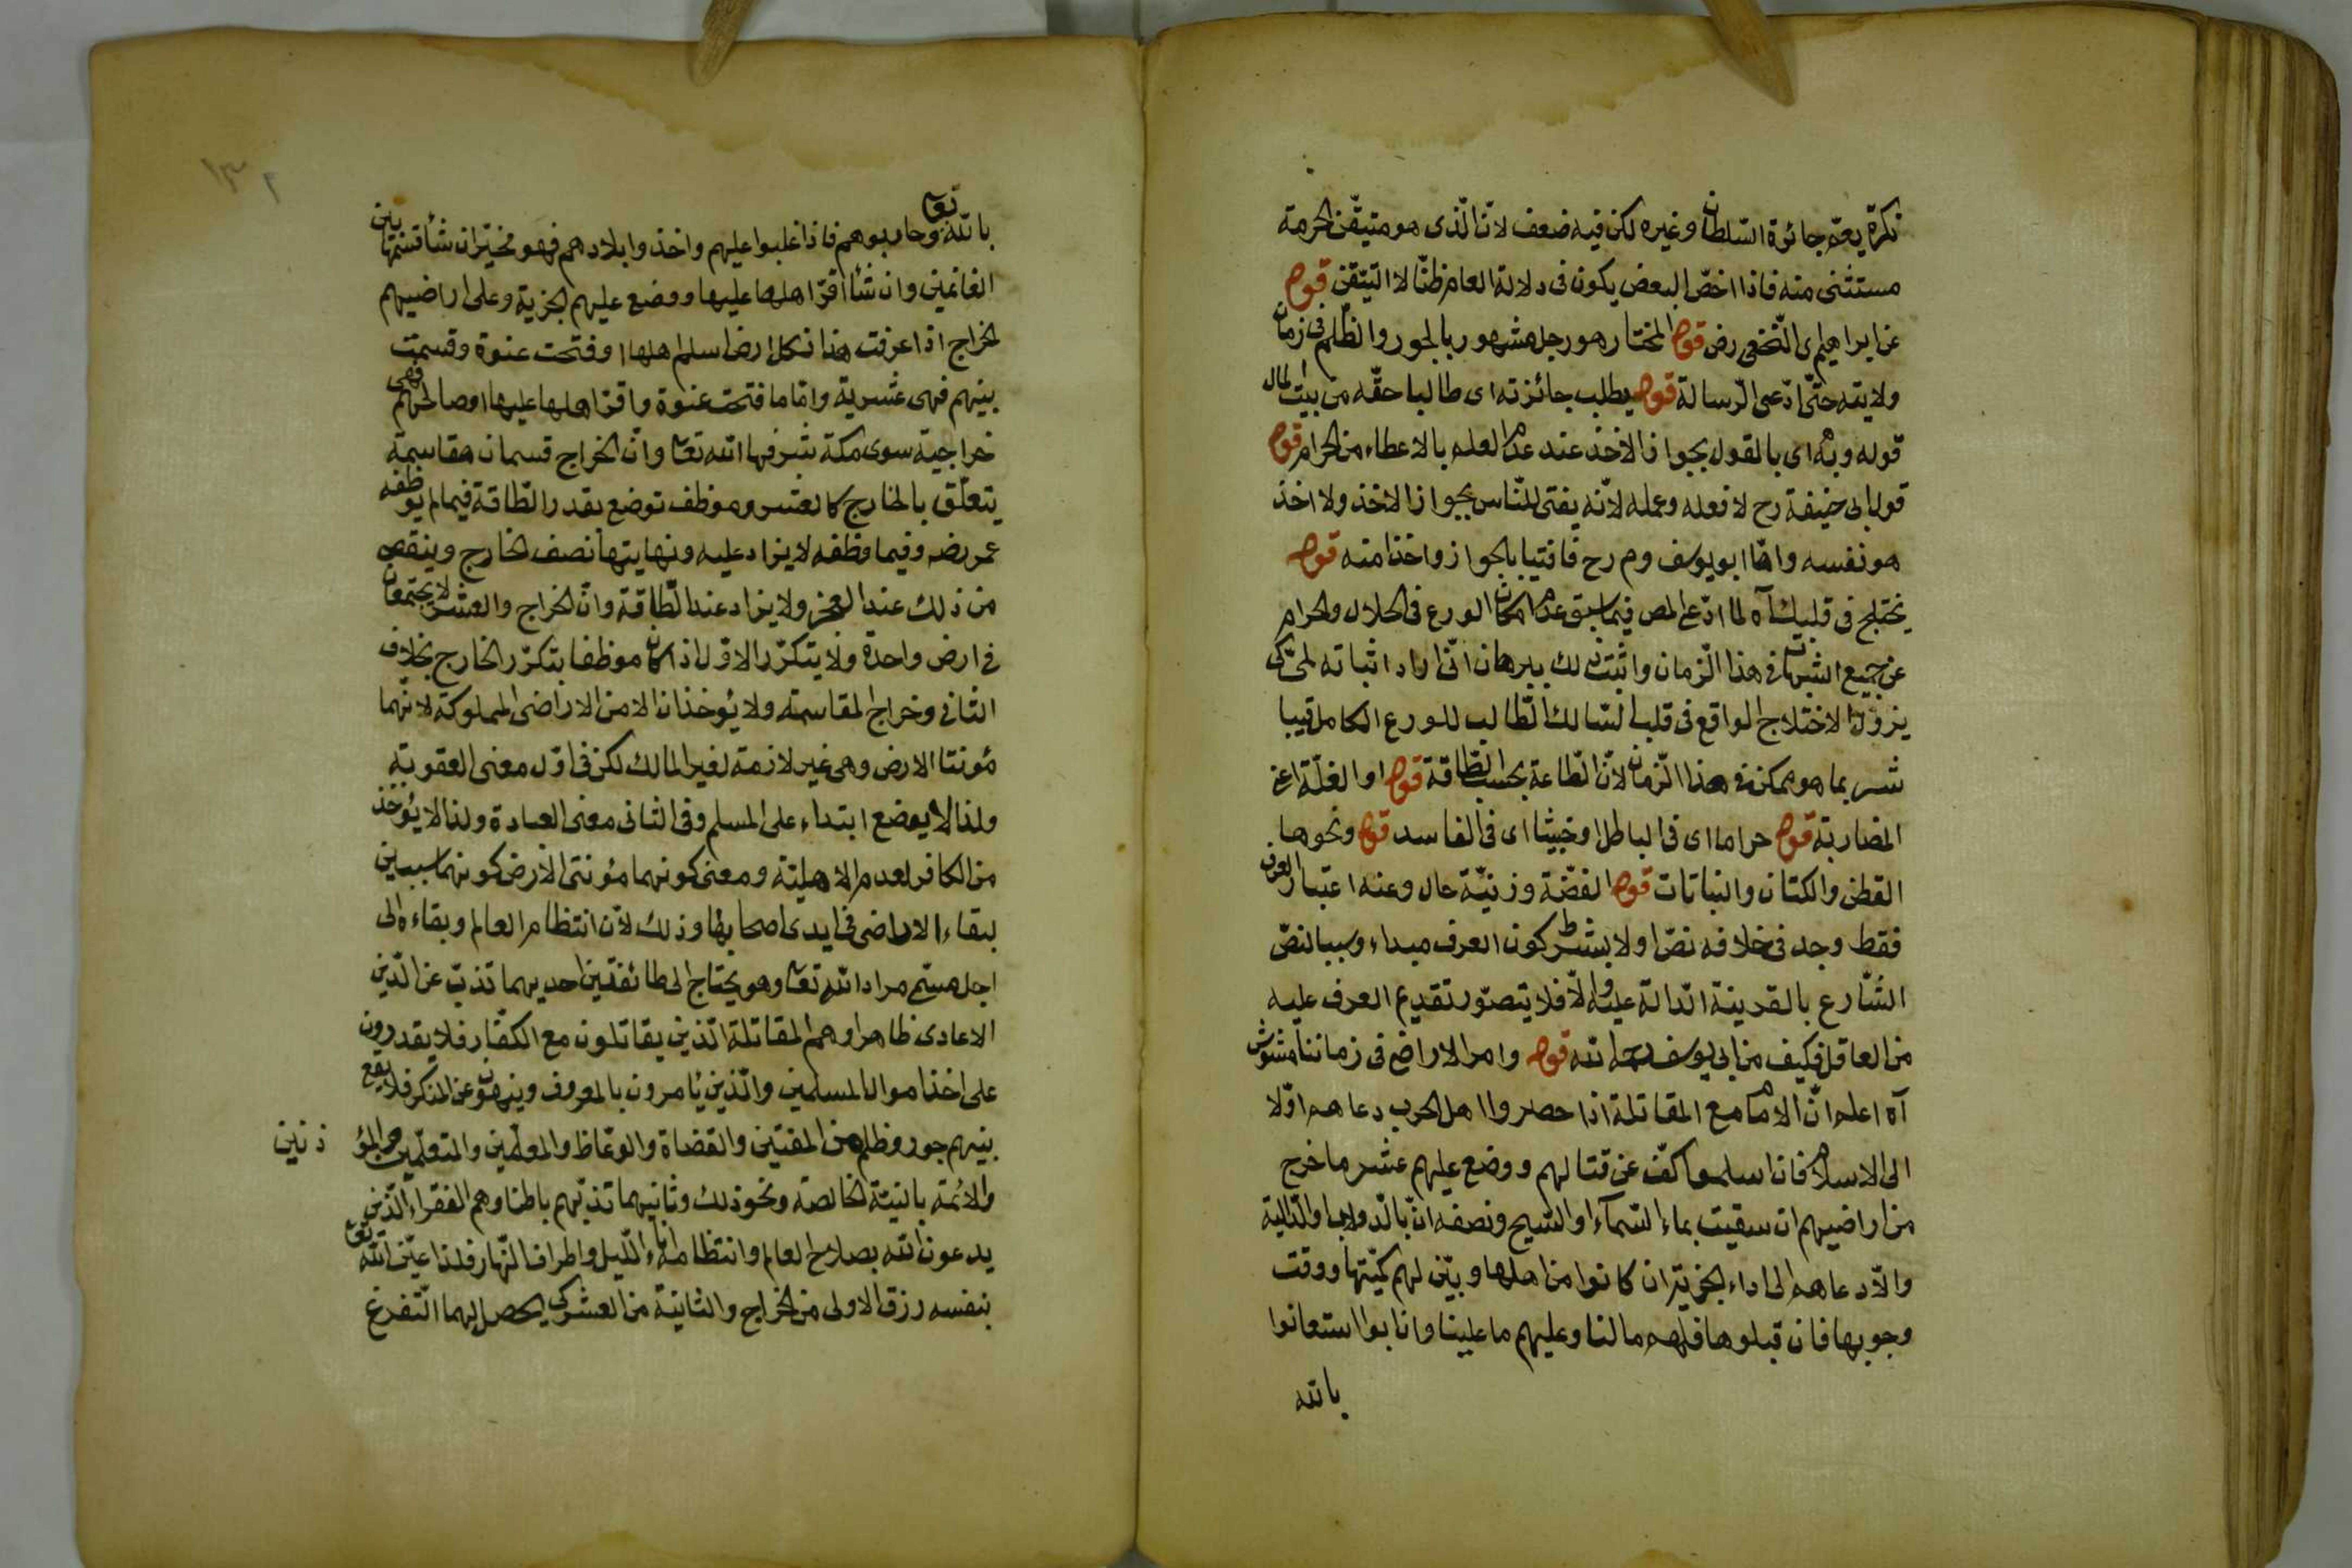 نكرة يعم جائزة السّلطان وغيره لكن فيه ضعف لانّ الّذى هو متيقّن الحرمة
مستثنى منه فاذا اخصّ البعض يكون فى دلالة العام ظنّا لا التيقن قوله
عن ابراهيم اى النّخعى رض قوله المختار هو رجل مشهور بالجور والظّلم فى زمان
ولايته حتّى ادّعى الرّسالة قوله يطلب جائزته اى طالبا حقّه من بيت المال
قوله وبه اى بالقول بجواز الاخذ عند عدم العلم بالاعطاء من الحرام قوله
قول ابى حنيفة رح لا فعله وعمله لانّه يفتى للنّاس بجواز الاخذ ولا اخذ
هو نفسه وامّا ابو يوسف وم رح فافتيا بالجواز واخذا منه قوله
يختلج فى قلبك آه لما ادّعى المص فيما سبق عدم امكان الورع فى الحلال والحرام
عن جميع الشبهات فى هذا الزّمان واثبت لك ببرهان انّى اراد اثباته لمّى كى
يزول الاختلاج الواقع فى قلب السّالك الطّالب للورع الكامل قيبا
شر بما هو ممكن فى هذا الزّمان لانّ الطّاعة بحسب الطّاقة قوله او الغلّة اعنى
المضاربة قوله حراما اى فى الباطل او خبيثا اى فى الفاسد قوله ونحوها
القطن والكتان والنباتات قوله الفضّة وزنيّة حال وعنه اعتبار العرف
فقط وجد فى خلافه نصّ اولا بشرط كون العرف مبداء وسببا لنصّ
الشّارع بالقرينة الدّالة عليه والّا فلا يتصوّر تقديم العرف عليه
من العاقل فكيف من ابى يوسف رحمه الله قوله وامر الاراضى فى زماننا مشوّش
آه اعلم انّ الامام مع المقاتلة اذا حصروا اهل الحرب دعاهم اوّلا
الى الاسلام فان اسلموا كفّ عن قتالهم ووضع عليهم عشر ما خرج
من اراضيهم ان سقيت بماء السّماء او السّيح ونصفه ان بالدّولاب والدّالية
والّا دعاهم الى اداء الجزية ان كانوا من اهلها وبيّن لهم كمّيتها ووقت
وجوبها فان قبلوها فلهم ما لنا وعليهم ما علينا وان ابوا استعانوا
بالله
بالله تعا وحاربوهم فاذا غلبوا عليهم واخذوا بلادهم فهو مخيّر ان شأ قسّمها بين
الغانمين وان شأ اقرّ اهلها عليها ووضع عليهم الجزية وعلى اراضيهم
الخراج اذا عرفت هذا فكل ارض اسلم اهلها او فتحت عنوة وقسمت
بينهم فهى عشرية وامّا ما فتحت عنوة واقرّ اهلها عليها او صالحهم فهى
خراجية سوى مكة شرفها الله تعا وانّ الخراج قسمان مقاسمة
يتعلّق بالخارج كالعشر وموظف توضع بقدر الطّاقة فيما لم يوظفه
عمر رضه وفيما وظفه لا يزاد عليه ونهايتها نصف الخارج وينقص
من ذلك عند العجز ولا يزاد عند الطّاقة وانّ الخراج والعشر لا يجتمعان
فى ارض واحدة ولا يتكرّر الاوّل اذا كان موظفا بتكرّر الخارج بخلاف
الثانى وخراج المقاسمة ولا يؤخذان الا من الاراضى المملوكة لانّهما
مؤنتا الارض وهى غير لازمة لغير المالك لكن فى اوّل معنى العقوبة
ولذا لا يوضع ابتداء على المسلم وفى الثانى معنى العبادة ولذا لا يؤخذ
من الكافر لعدم الاهليّة ومعنى كونهما مؤنتى الارض كونهما سببين
لبقاء الاراضى فى ايدى اصحابها وذلك لانّ انتظام العالم وبقاءه الى
اجل مسمّى مراد الله تعا وهو يحتاج الى طائفتين احديهما تذبّ عن الدّين
الاعادى ظاهرا وهم المقاتلة الّذين يقاتلون مع الكفّار فلا يقدرون
على اخذ اموال المسلمين والّذين يأمرون بالمعروف وينهون عن المنكر فلا يقع
بينهم جور وظلم من المفتين والقضاة والوعّاظ والمعلّمين والمتعلّمين والمؤذنين
والائمة بالنيّة الخالصة ونحو ذلك وثانيهما تذبّهم باطنا وهم الفقراء الّذين
يدعون الله بصلاح العالم وانتظامه اناء اللّيل واطراف النّهار فلذا عيّن الله تعا
بنفسه رزق الاولى من الخراج والثانية من العشر كى يحصل لهما التّفرغ